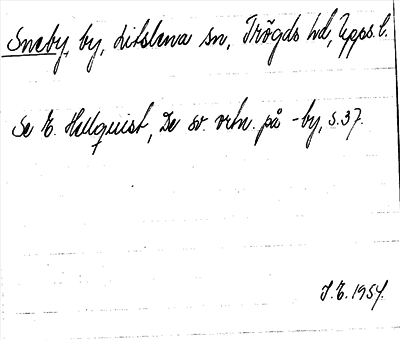 Sneby, by, Litslena sn, Trögds hd, Upps. l.
Se E. Hellquist, De sv. ortn. på -by, s. 37.
S.E. 1954.